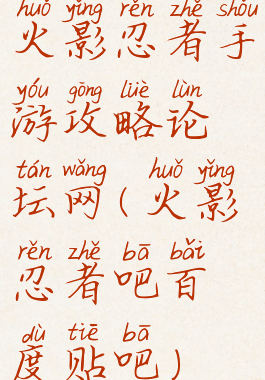 huǒ yǐng rěn zhě shǒu
火影忍者手
yóu gōng lüè lùn
游攻略论
tán wǎng huǒ yǐng
坛网(火影
rěn zhě bā bǎi
忍者吧百
dù tiē bā
度贴吧)